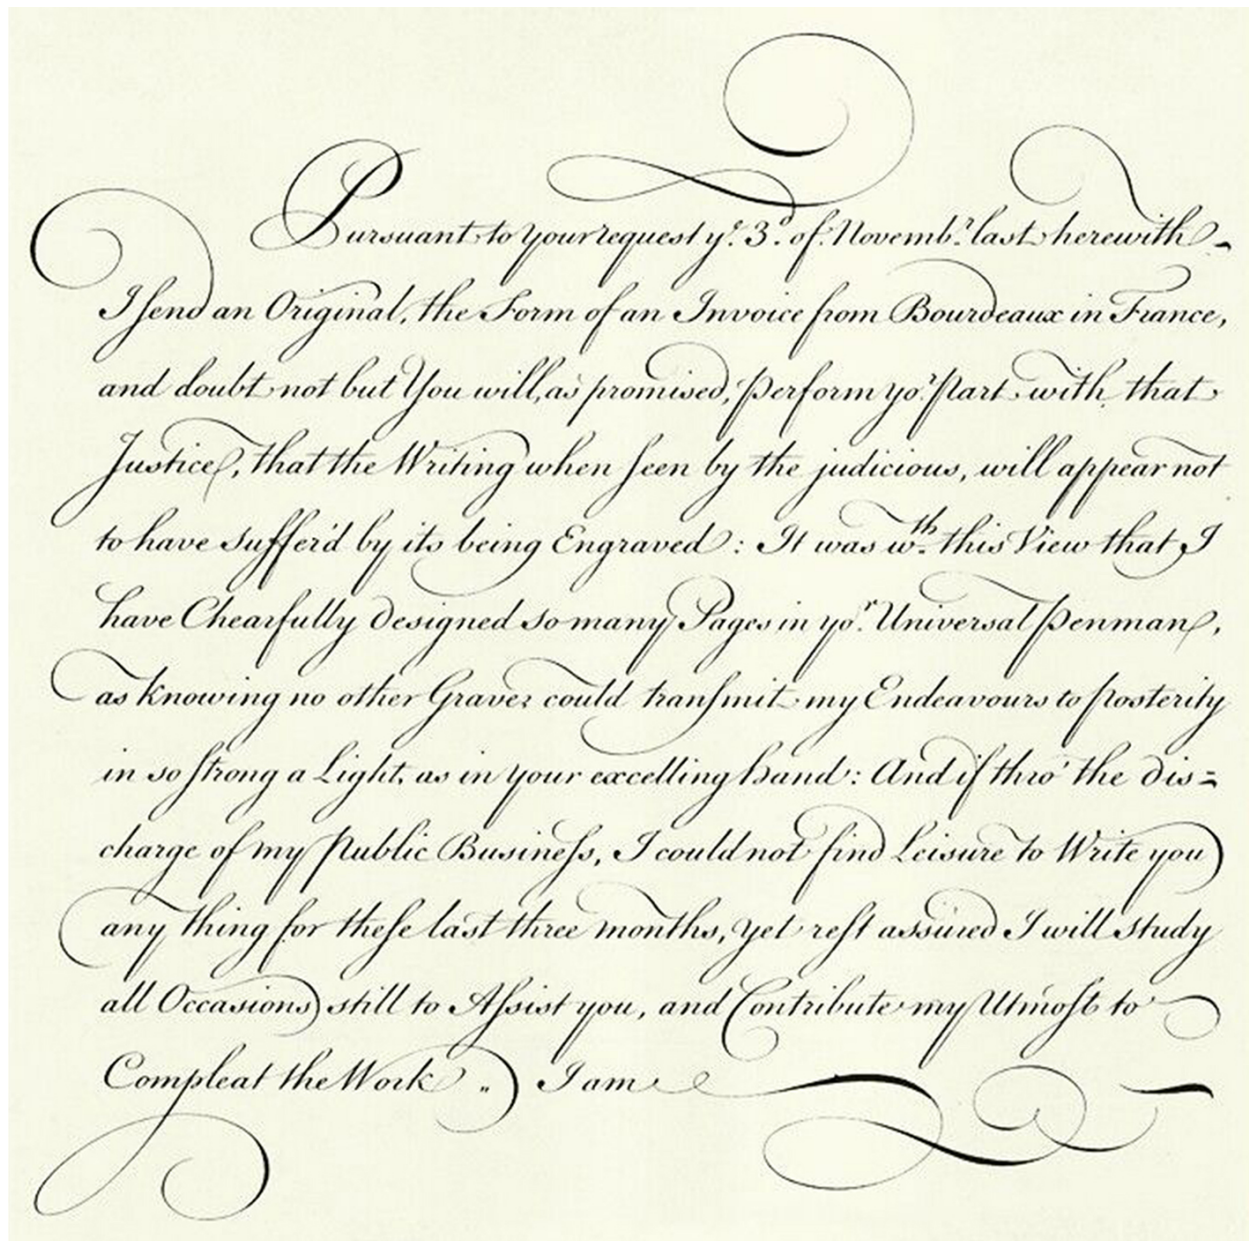 Pursuant to your request yͤ. 3ͩ. of. Novembʳ. last herewith
I ſend an Original, the Form of an Invoice from Bourdeaux in France,
and doubt not but You will, as promised, Perform yoʳ. Part with that
Justice, that the Writing when ſeen by the judicious, will appear not
to have Suffer'd by its being Engraved : It was wᵗʰ. this View that I
have Chearfully Designed so many Pages in yoʳ. Universal Penman,
as knowing no other Graver could tranſmit my Endeavours to Posterity
in so ſtrong a Light, as in your excelling Hand : And if thro' the dis=
charge of my Public Buſineſs, I could not find Leisure to Write you
any thing for theſe last three months, yet reſt assured I will Study
all Occasions still to Aſsist you, and Contribute my Utmoſt to
Compleat the Work „ I am